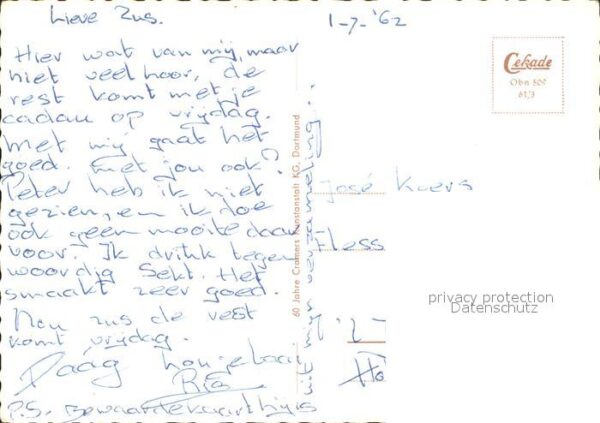 Lieve Zus.
1-7-'62
Hier wat van mij, maar
niet veel hoor, de
rest komt met je
cadau op vrijdag.
Met mij gaat het
goed. Met jou ook?
Peter heb ik niet
gezien, en ik doe
ook geen mooite daar
voor. Ik drink tegen
woordig Sekt. Het
smaakt zeer goed.
Nou zus de rest
komt vrijdag.
Daág
P.S. Bewaar de kaart
uit mijn verzameling.
60 Jahre Cramers Kunstanstalt KG, Dortmund
Cekade
Obn 509
61/3
José
privacy protection
Datenschutz